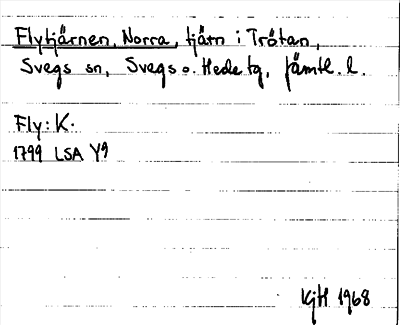 Flytjärnen, Norra, tjärn i Trötan,
Svegs sn, Svegs o. Hede tg, Jämtl. l.
Fly: K.
1799 LSA Y9
KjH 1968